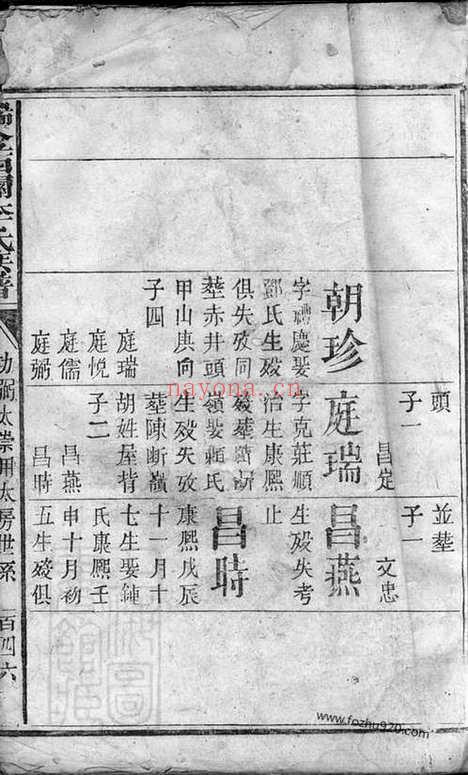 朝珍
字禮慶娶
鄧氏生殁
俱失攷同
塟赤井頭
甲山庚向
子四
庭瑞
庭悅
庭儒
庭弼
頭
子一
昌定
庭瑞
字克莊順
治生康熙
嶺娶賴氏
生殁失攷
塟陳断嶺
胡姓屋背
子二
昌燕
昌時
並塟
子一
文忠
昌燕
生殁失考
止
昌時
康熙戊辰
十一月十
七生娶鍾
氏康熙壬
申十月初
五生殁俱
氏族譜
功弼太崇用太房世系
百四六
nayona.cn
www.fozhu920.com